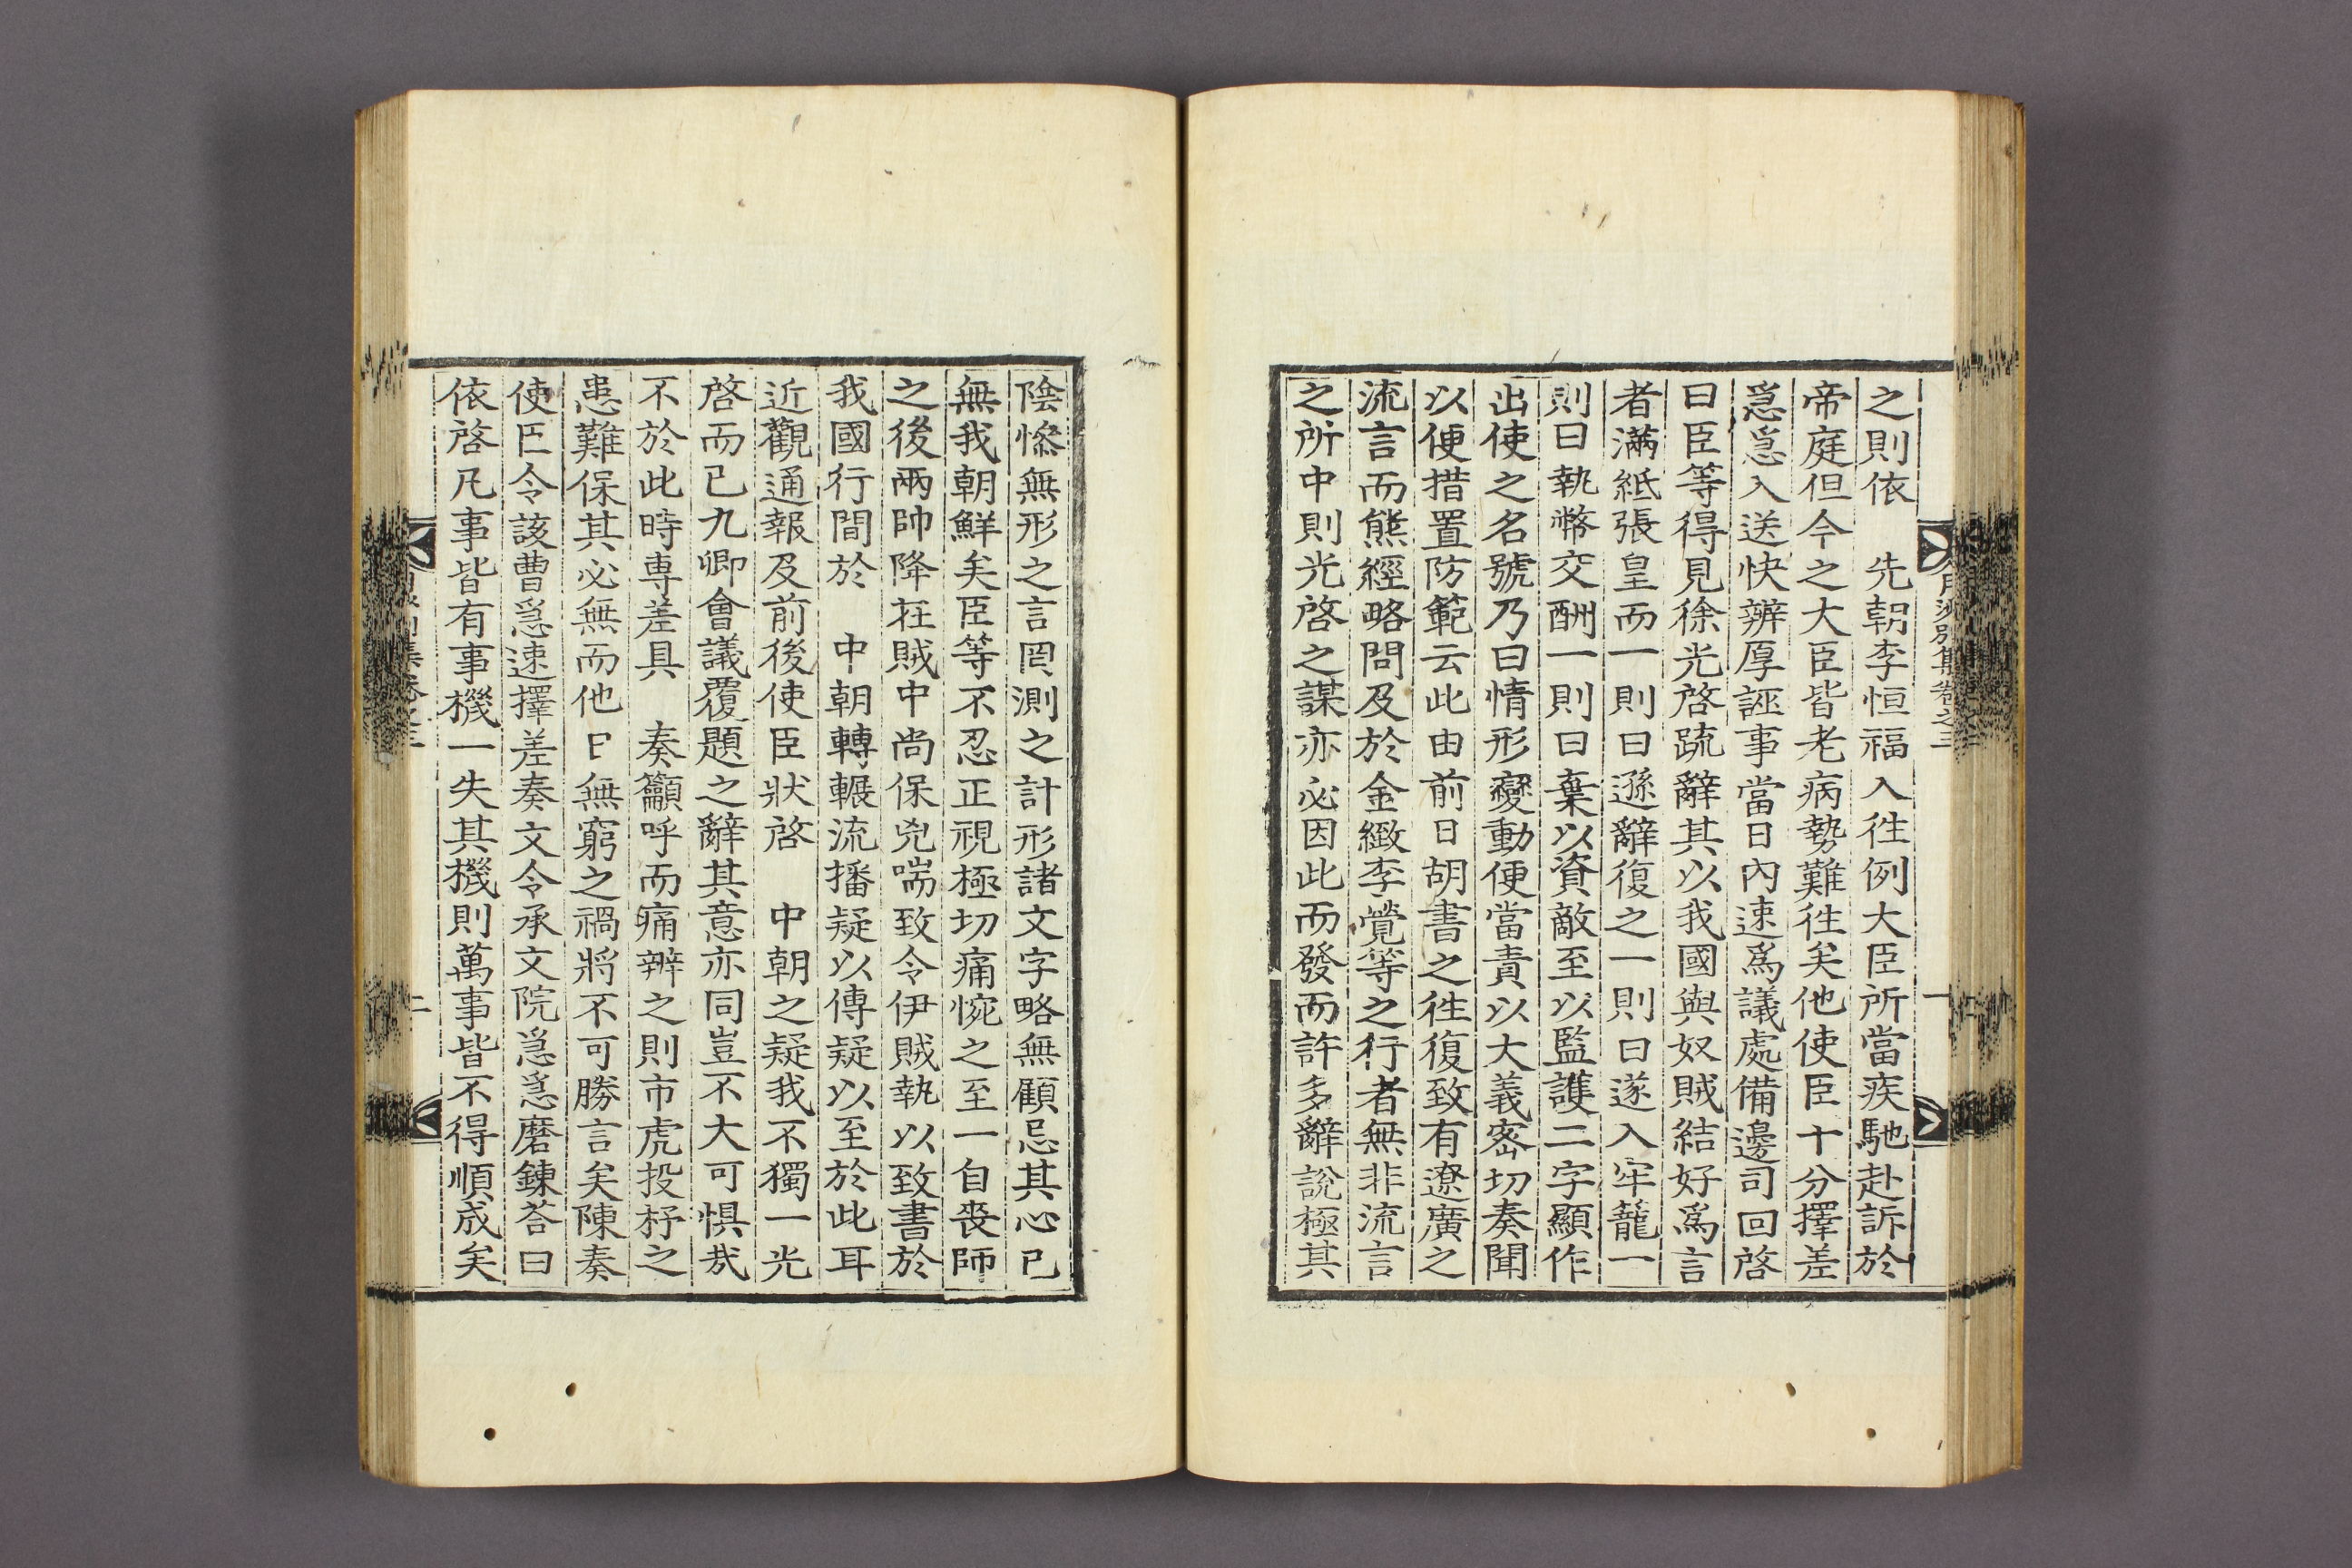 月沙別集卷之三
一
之則依　先朝李恒福入徃例大臣所當疾馳赴訴於
帝庭但今之大臣皆老病勢難徃矣他使臣十分擇差
急急入送快辨厚誣事當日內速爲議處備邊司回啓
曰臣等得見徐光啓疏辭其以我國與奴賊結好爲言
者滿紙張皇而一則曰遜辭復之一則曰遂入牢籠一
則曰執幣交酬一則曰棄以資敵至以監護二字顯作
出使之名號乃曰情形變動便當責以大義密切奏聞
以便措置防範云此由前日胡書之徃復致有遼廣之
流言而熊經略問及於金緻李覮等之行者無非流言
之所中則光啓之謀亦必因此而發而許多辭說極其
陰慘無形之言罔測之計形諸文字略無顧忌其心已
無我朝鮮矣臣等不忍正視極切痛惋之至一自喪師
之後兩帥降在賊中尚保兇喘致令伊賊執以致書於
我國行間於　中朝轉輾流播疑以傳疑以至於此耳
近觀通報及前後使臣狀啓　中朝之疑我不獨一光
啓而已九卿會議覆題之辭其意亦同豈不大可惧㢤
不於此時專差具　奏籲呼而痛辨之則市虎投杼之
患難保其必無而他日無窮之禍將不可勝言矣陳奏
使臣令該曹急速擇差奏文令承文院急急磨鍊荅曰
依啓凡事皆有事機一失其機則萬事皆不得順成矣
二